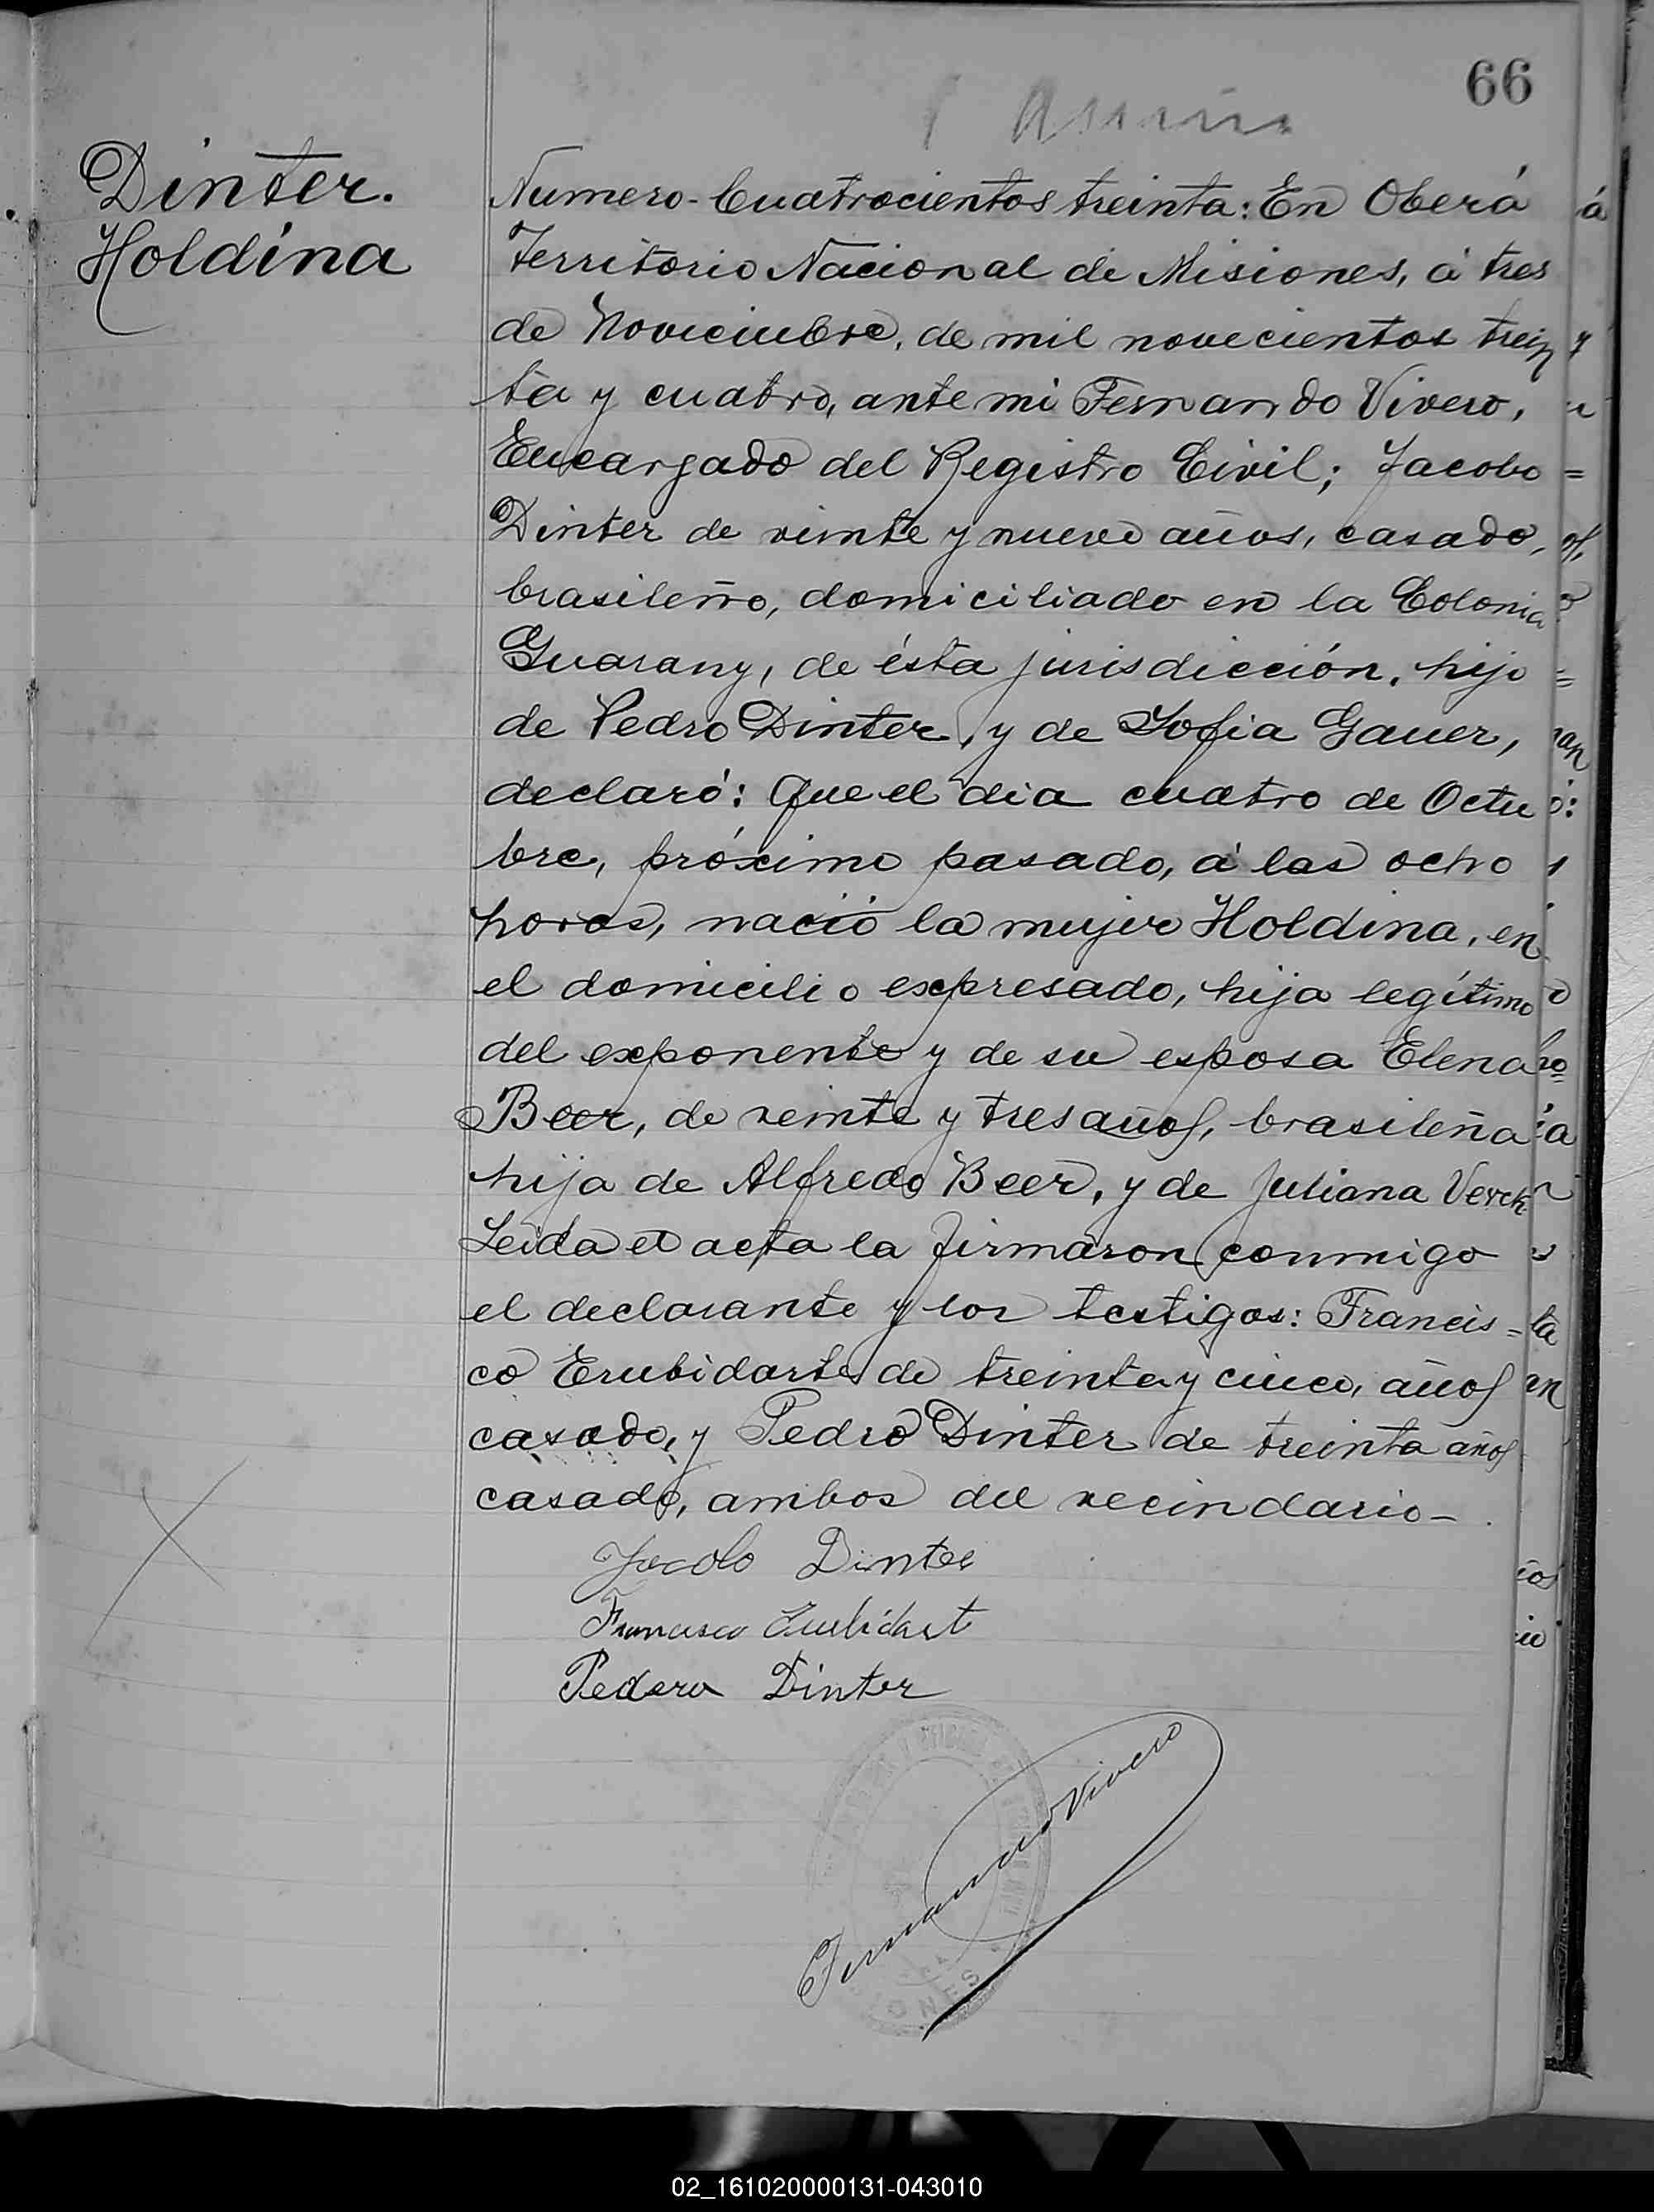 66
Dinter.
Holdina
Numero-Cuatrocientos treinta: En Oberá
Territorio Nacional de Misiones, á tres
de Noviembre, de mil novecientos trein
ta y cuatro, ante mi Fernando Vivero,
Encargado del Registro Civil; Jacobo
Dinter de veinte y nueve años, casado,
brasileño, domiciliado en la Colonia
Guarany, de ésta jurisdicción, hijo
de Pedro Dinter, y de Sofia Gauer,
declaró: Que el dia cuatro de Octu
bre, próximo pasado, á las ocho
horas, nació la mujer Holdina, en
el domicilio expresado, hija legítima
del exponente y de su esposa Elena
Beer, de veinte y tres años, brasileña
hija de Alfredo Beer, y de Juliana Verch
Leida el acta la firmaron conmigo
el declarante y los testigos: Francis=
co Erubidarte de treinta y cinco, años
casado, y Pedro Dinter de treinta años
casado, ambos del vecindario-
Jacobo Dinter
Francisco
Pedero Dinter
Fernando Vivero
ONES
02_161020000131-043010